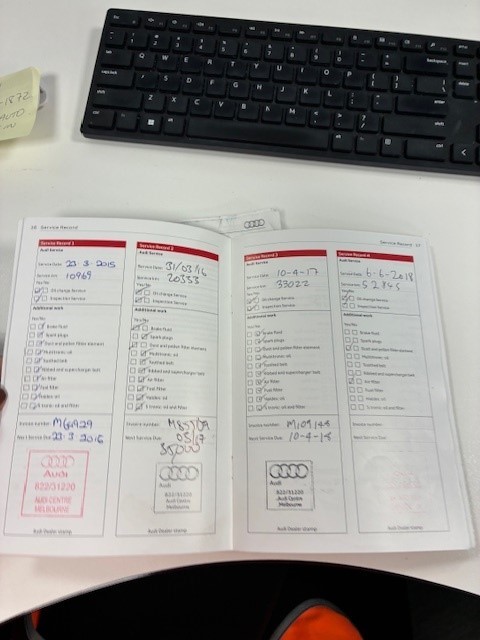 16 Service Record
Service Record 1
Audi Service
Service Date 23-3-2015
Service km 10969
Yes/No
Oil change Service
Inspection Service
Additional work
Yes/No
Brake fluid
Spark plugs
Dust and pollen filter element
Multitronic oil
Toothed belt
Ribbed and supercharger belt
Air filter
Fuel filter
Haldex oil
S tronic oil and filter
Invoice number
Next Service Due 23-3-2016
Audi
822/31220
AUDI CENTRE
MELBOURNE
Audi Dealer stamp
Service Record 2
Audi Service
Service Date 31/03/16
Service km 20353
Yes/No
Oil change Service
Inspection Service
Additional work
Yes/No
Brake fluid
Spark plugs
Dust and pollen filter element
Multitronic oil
Toothed belt
Ribbed and supercharger belt
Air filter
Fuel filter
Haldex oil
S tronic oil and filter
Invoice number
Next Service Due 03/17
35,000
Audi
822/31220
Audi Centre
Melbourne
Audi Dealer stamp
Service Record 17
Service Record 3
Audi Service
Service Date 10-4-17
Service km 33022
Yes/No
Oil change Service
Inspection Service
Additional work
Yes/No
Brake fluid
Spark plugs
Dust and pollen filter element
Multitronic oil
Toothed belt
Ribbed and supercharger belt
Air filter
Fuel filter
Haldex oil
S tronic oil and filter
Invoice number M109144
Next Service Due 10-4-18
Audi
822/31220
Audi Centre
Melbourne
Audi Dealer stamp
Service Record 4
Audi Service
Service Date 6-6-2018
Service km
Yes/No
Oil change Service
Inspection Service
Additional work
Yes/No
Brake fluid
Spark plugs
Dust and pollen filter element
Multitronic oil
Toothed belt
Ribbed and supercharger belt
Air filter
Fuel filter
Haldex oil
S tronic oil and filter
Invoice number
Next Service Due
Audi Dealer stamp